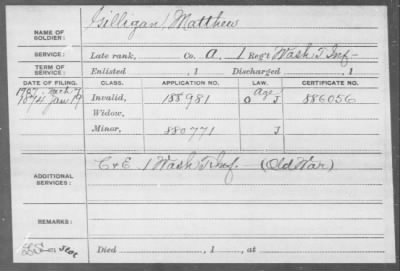 NAME OF SOLDIER: Gilligan, Matthew
SERVICE: Late rank, Co. A, 1 Reg't Wash. T. Inf-
TERM OF SERVICE: Enlisted , 1 Discharged , 1
DATE OF FILING. CLASS. APPLICATION NO. LAW. CERTIFICATE NO.
Age
1874 Jan 19 Invalid, 188981 O J 886056
Widow,
Minor, 880771 J
ADDITIONAL SERVICES: C & E 1 Wash T Inf. (Old War)
REMARKS:
Died , 1 , at